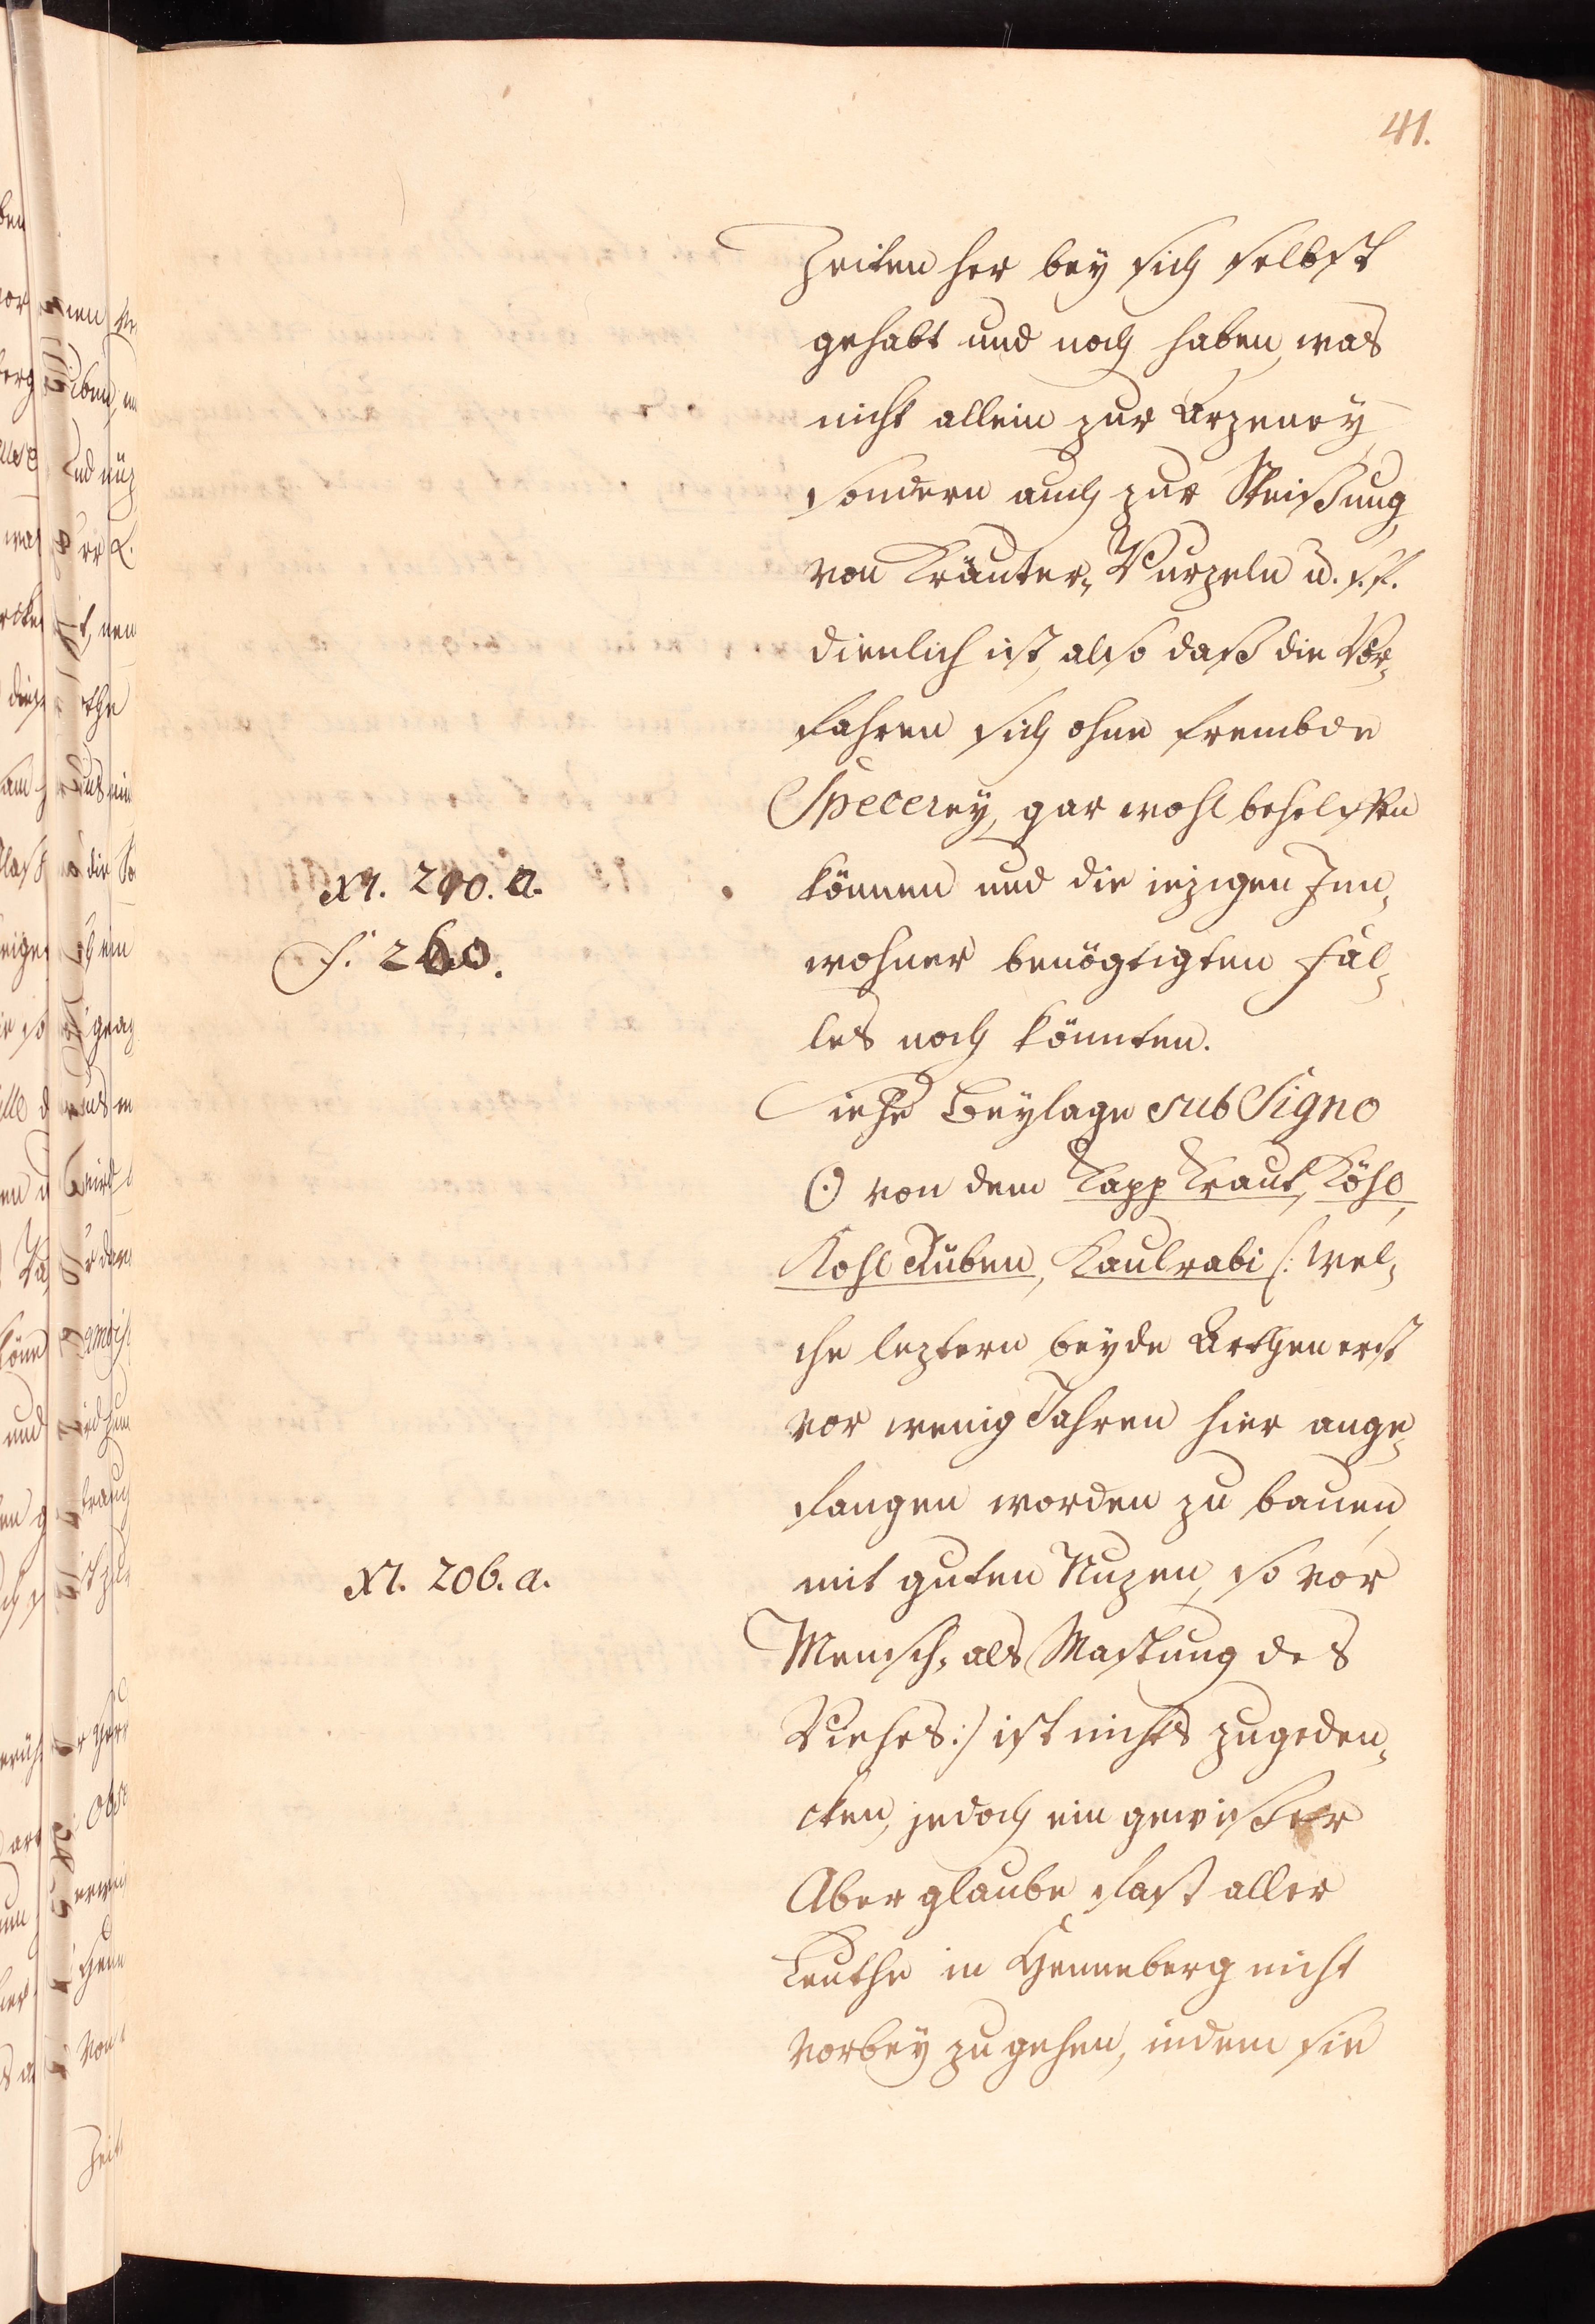 41.
Zeiten her bey sich selbst
gehabt und noch haben, was
nicht allein zur Arzeney
sondern auch zur Speißung,
von Kräuter, Wurzeln u. s. f.
dienlich ist, also daß die Vor,
fahren sich ohne frembde
Specerey, gar wohl behelffen
können und die iezigen Inn,
wohner benögtigten Fäl,
les noch könnten.
Siehe Beylage sub Signo
☉ von dem Kapp Kraut, Köhl,
Kohl Rüben, Kaulrabi /: wel,
che leztern beyde Arthen erst
vor wenig Jahren hier ange,
fangen worden zu bauen,
mit guten Nuzen, so vor
Mensch, als Mastung des
Viehes :/ ist nichts zugeden,
cken, jedoch ein gewißer
Aber glaube fast aller
Leuthe in Henneberg nicht
vorbey zu gehen, indem sie
N. 290. a.
f. 260.
N. 206. a.